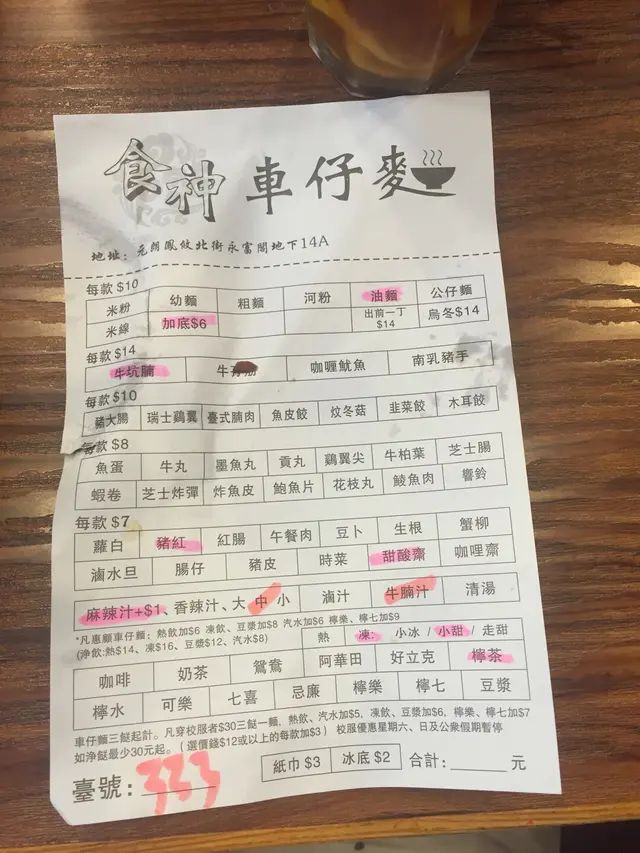 食神 車仔麥
地址：元朗鳳攸北街永富閣地下14A
每款 $10
米粉 幼麵 粗麵 河粉 油麵 公仔麵
米線 加底$6 出前一丁 $14 烏冬$14
每款 $14
牛坑腩 咖喱魷魚 南乳豬手
每款 $10
豬大腸 瑞士鷄翼 臺式腩肉 魚皮餃 炆冬菇 韭菜餃 木耳餃
每款 $8
魚蛋 牛丸 墨魚丸 貢丸 鷄翼尖 牛柏葉 芝士腸
蝦卷 芝士炸彈 炸魚皮 鮑魚片 花枝丸 鯪魚肉 響鈴
每款 $7
蘿白 豬紅 紅腸 午餐肉 豆卜 生根 蟹柳
滷水旦 腸仔 豬皮 時菜 甜酸齋 咖哩齋
麻辣汁+$1、香辣汁、大 中 小 滷汁 牛腩汁 清湯
*凡惠顧車仔麵：熱飲加$6 凍飲、豆漿加$8 汽水加$6 檸樂、檸七加$9
(淨飲:熱$14、凍$16、豆漿$12、汽水$8)
熱 凍: 小冰 / 小甜 / 走甜
咖啡 奶茶 鴛鴦 阿華田 好立克 檸茶
檸水 可樂 七喜 忌廉 檸樂 檸七 豆漿
車仔麵三餸起計。凡穿校服者$30三餸一麵，熱飲、汽水加$5，凍飲、豆漿加$6，檸樂、檸七加$7
如淨餸最少30元起。（選價錢$12或以上的每款加$3） 校服優惠星期六、日及公衆假期暫停
紙巾 $3 冰底 $2 合計：______元
臺號：333